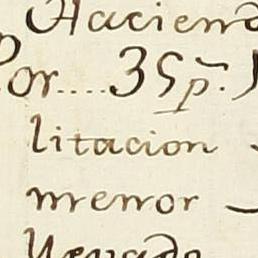 Haciend
Por.... 35 p.
litacion
menor —